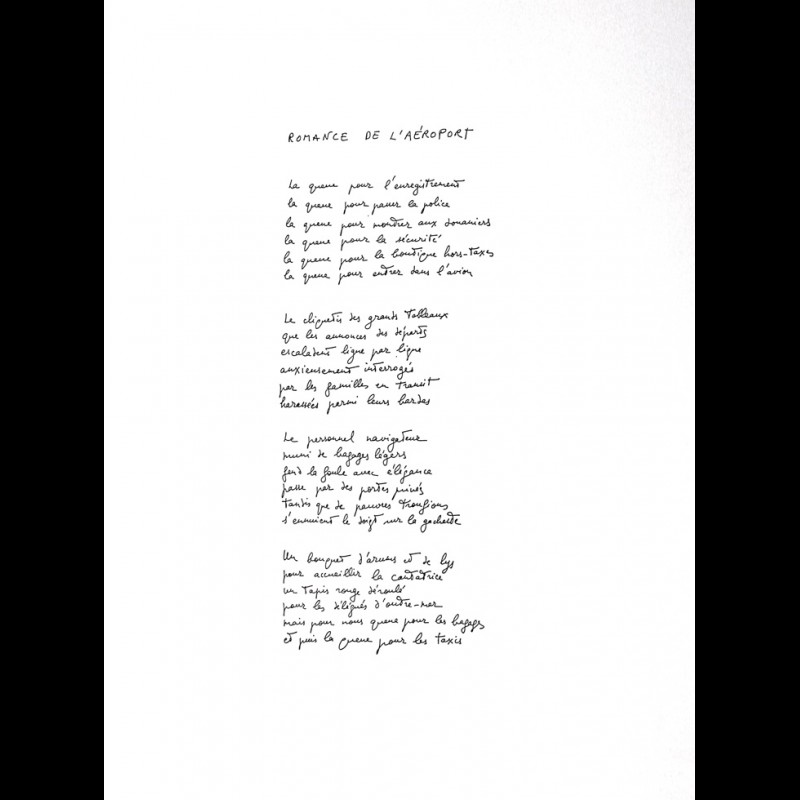 ROMANCE DE L'AÉROPORT
La queue pour l'enregistrement
la queue pour passer la police
la queue pour montrer aux douaniers
la queue pour la sécurité
la queue pour la boutique hors-taxes
la queue pour entrer dans l'avion
Le cliquetis des grands tableaux
que les annonces des départs
escaladent ligne par ligne
anxieusement interrogés
par les familles en transit
harassées parmi leurs hardes
Le personnel navigateur
muni de bagages légers
fend la foule avec élégance
passe par des portes privés
tandis que de pauvres troufions
s'ennuient le doigt sur la gachette
Un bouquet d'arums et de lys
pour accueillir la cantatrice
un tapis rouge déroulé
pour les délégués d'outre-mer
mais pour nous queue pour les bagages
et puis la queue pour les taxis